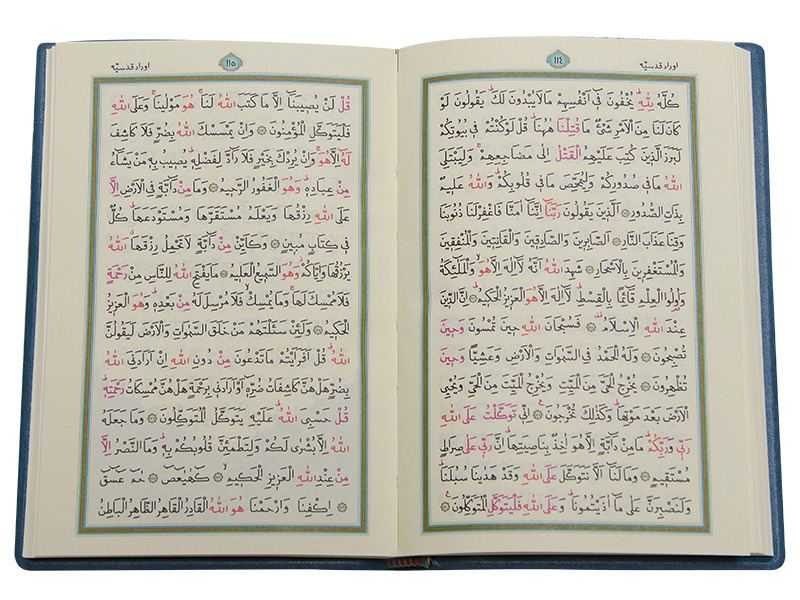 ١١٤ اوراد قدسيّه
كُلَّهُ لِلّٰهِۜ يُخْفُونَ فِٓي اَنْفُسِهِمْ مَا لَا يُبْدُونَ لَكَۜ يَقُولُونَ لَوْ
كَانَ لَنَا مِنَ الْاَمْرِ شَيْءٌ مَا قُتِلْنَا هٰهُنَاۜ قُلْ لَوْ كُنْتُمْ فِي بُيُوتِكُمْ
لَبَرَزَ الَّذِينَ كُتِبَ عَلَيْهِمُ الْقَتْلُ اِلٰى مَضَاجِعِهِمْۚ وَلِيَبْتَلِيَ
اللّٰهُ مَا فِي صُدُورِكُمْ وَلِيُمَحِّصَ مَا فِي قُلُوبِكُمْۜ وَاللّٰهُ عَلِيمٌ
بِذَاتِ الصُّدُورِ ۞ اَلَّذِينَ يَقُولُونَ رَبَّنَٓا اِنَّنَٓا اٰمَنَّا فَاغْفِرْ لَنَا ذُنُوبَنَا
وَقِنَا عَذَابَ النَّارِ ۞ اَلصَّابِرِينَ وَالصَّادِقِينَ وَالْقَانِتِينَ وَالْمُنْفِقِينَ
وَالْمُسْتَغْفِرِينَ بِالْاَسْحَارِ ۞ شَهِدَ اللّٰهُ اَنَّهُ لَٓا اِلٰهَ اِلَّا هُوَۙ وَالْمَلٰٓئِكَةُ
وَاُو۬لُوا الْعِلْمِ قَٓائِمًا بِالْقِسْطِۜ لَٓا اِلٰهَ اِلَّا هُوَ الْعَزِيزُ الْحَكِيمُ ۞ اِنَّ الدِّينَ
عِنْدَ اللّٰهِ الْاِسْلَامُ ۞ فَسُبْحَانَ اللّٰهِ حِينَ تُمْسُونَ وَحِينَ
تُصْبِحُونَ ۞ وَلَهُ الْحَمْدُ فِي السَّمٰوَاتِ وَالْاَرْضِ وَعَشِيًّا وَحِينَ
تُظْهِرُونَ ۞ يُخْرِجُ الْحَيَّ مِنَ الْمَيِّتِ وَيُخْرِجُ الْمَيِّتَ مِنَ الْحَيِّ وَيُحْيِي
الْاَرْضَ بَعْدَ مَوْتِهَاۜ وَكَذٰلِكَ تُخْرَجُونَ ۞ اِنِّي تَوَكَّلْتُ عَلَى اللّٰهِ
رَبِّي وَرَبِّكُمْۜ مَا مِنْ دَٓابَّةٍ اِلَّا هُوَ اٰخِذٌ بِنَاصِيَتِهَاۜ اِنَّ رَبِّي عَلٰى صِرَاطٍ
مُسْتَقِيمٍ ۞ وَمَا لَنَٓا اَلَّا نَتَوَكَّلَ عَلَى اللّٰهِ وَقَدْ هَدٰينَا سُبُلَنَاۜ
وَلَنَصْبِرَنَّ عَلٰى مَٓا اٰذَيْتُمُونَاۜ وَعَلَى اللّٰهِ فَلْيَتَوَكَّلِ الْمُتَوَكِّلُونَ ۞
١١٥ اوراد قدسيّه
قُلْ لَنْ يُصِيبَنَٓا اِلَّا مَا كَتَبَ اللّٰهُ لَنَاۚ هُوَ مَوْلٰينَاۚ وَعَلَى اللّٰهِ
فَلْيَتَوَكَّلِ الْمُؤْمِنُونَ ۞ وَاِنْ يَمْسَسْكَ اللّٰهُ بِضُرٍّ فَلَا كَاشِفَ
لَهُٓ اِلَّا هُوَۚ وَاِنْ يُرِدْكَ بِخَيْرٍ فَلَا رَٓادَّ لِفَضْلِهِۜ يُصِيبُ بِهِ مَنْ يَشَٓاءُ
مِنْ عِبَادِهِۜ وَهُوَ الْغَفُورُ الرَّحِيمُ ۞ وَمَا مِنْ دَٓابَّةٍ فِي الْاَرْضِ اِلَّا
عَلَى اللّٰهِ رِزْقُهَا وَيَعْلَمُ مُسْتَقَرَّهَا وَمُسْتَوْدَعَهَاۜ كُلٌّ
فِي كِتَابٍ مُبِينٍ ۞ وَكَاَيِّنْ مِنْ دَٓابَّةٍ لَا تَحْمِلُ رِزْقَهَاۗ اَللّٰهُ
يَرْزُقُهَا وَاِيَّاكُمْۘ وَهُوَ السَّمِيعُ الْعَلِيمُ ۞ مَا يَفْتَحِ اللّٰهُ لِلنَّاسِ مِنْ رَحْمَةٍ
فَلَا مُمْسِكَ لَهَاۚ وَمَا يُمْسِكْۙ فَلَا مُرْسِلَ لَهُ مِنْ بَعْدِهِۜ وَهُوَ الْعَزِيزُ
الْحَكِيمُ ۞ وَلَئِنْ سَاَلْتَهُمْ مَنْ خَلَقَ السَّمٰوَاتِ وَالْاَرْضَ لَيَقُولُنَّ
اللّٰهُۜ قُلْ اَفَرَاَيْتُمْ مَا تَدْعُونَ مِنْ دُونِ اللّٰهِ اِنْ اَرَادَنِيَ اللّٰهُ
بِضُرٍّ هَلْ هُنَّ كَاشِفَاتُ ضُرِّهِٓ اَوْ اَرَادَنِي بِرَحْمَةٍ هَلْ هُنَّ مُمْسِكَاتُ رَحْمَتِهِۜ
قُلْ حَسْبِيَ اللّٰهُۜ عَلَيْهِ يَتَوَكَّلُ الْمُتَوَكِّلُونَ ۞ وَمَا جَعَلَهُ
اللّٰهُ اِلَّا بُشْرٰى لَكُمْ وَلِتَطْمَئِنَّ قُلُوبُكُمْ بِهِۜ وَمَا النَّصْرُ اِلَّا
مِنْ عِنْدِ اللّٰهِ الْعَزِيزِ الْحَكِيمِ ۞ كٓهٰيٰعٓصٓ ۞ حٰمٓ عٓسٓقٓ
۞ اِكْفِنَا وَارْحَمْنَا هُوَ اللّٰهُ الْقَادِرُ الْقَاهِرُ الظَّاهِرُ الْبَاطِنُ